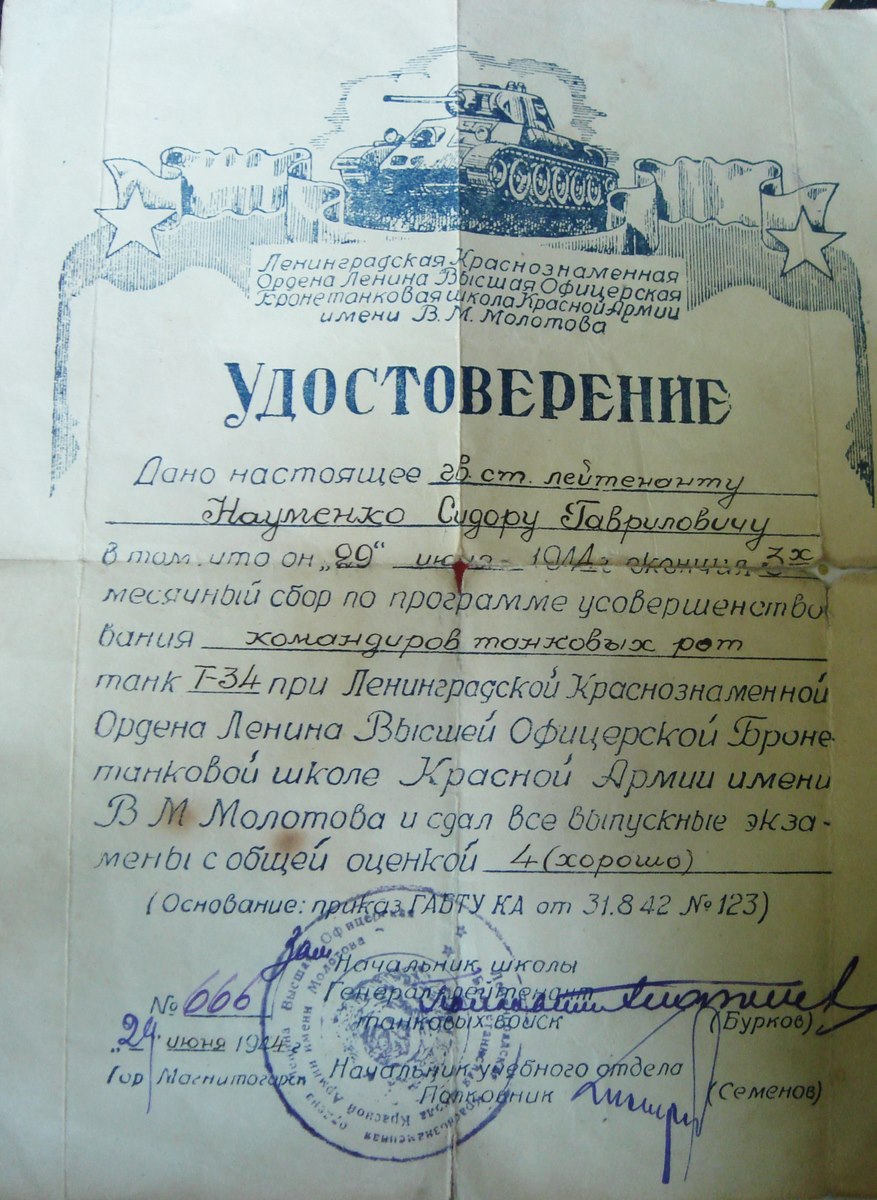 Ленинградская Краснознаменная
Ордена Ленина Высшая Офицерская
Бронетанковая школа Красной Армии
имени В. М. Молотова
УДОСТОВЕРЕНИЕ
Дано настоящее гв. ст. лейтенанту
Науменко Сидору Гавриловичу
в том, что он „29“ июня 1944 г окончил 3х
месячный сбор по программе усовершенство
вания командиров танковых рот
танк Т-34 при Ленинградской Краснознаменной
Ордена Ленина Высшей Офицерской Броне-
танковой школе Красной Армии имени
В М Молотова и сдал все выпускные экза-
мены с общей оценкой 4 (хорошо)
(Основание: приказ ГАБТУ КА от 31.8 42 №123)
Зам Начальник школы
Генерал-лейтенант
танковых войск (Бурков)
№ 666
„29 июня 1944 г
Гор Магнитогорск
Начальник учебного отдела
Полковник (Семенов)